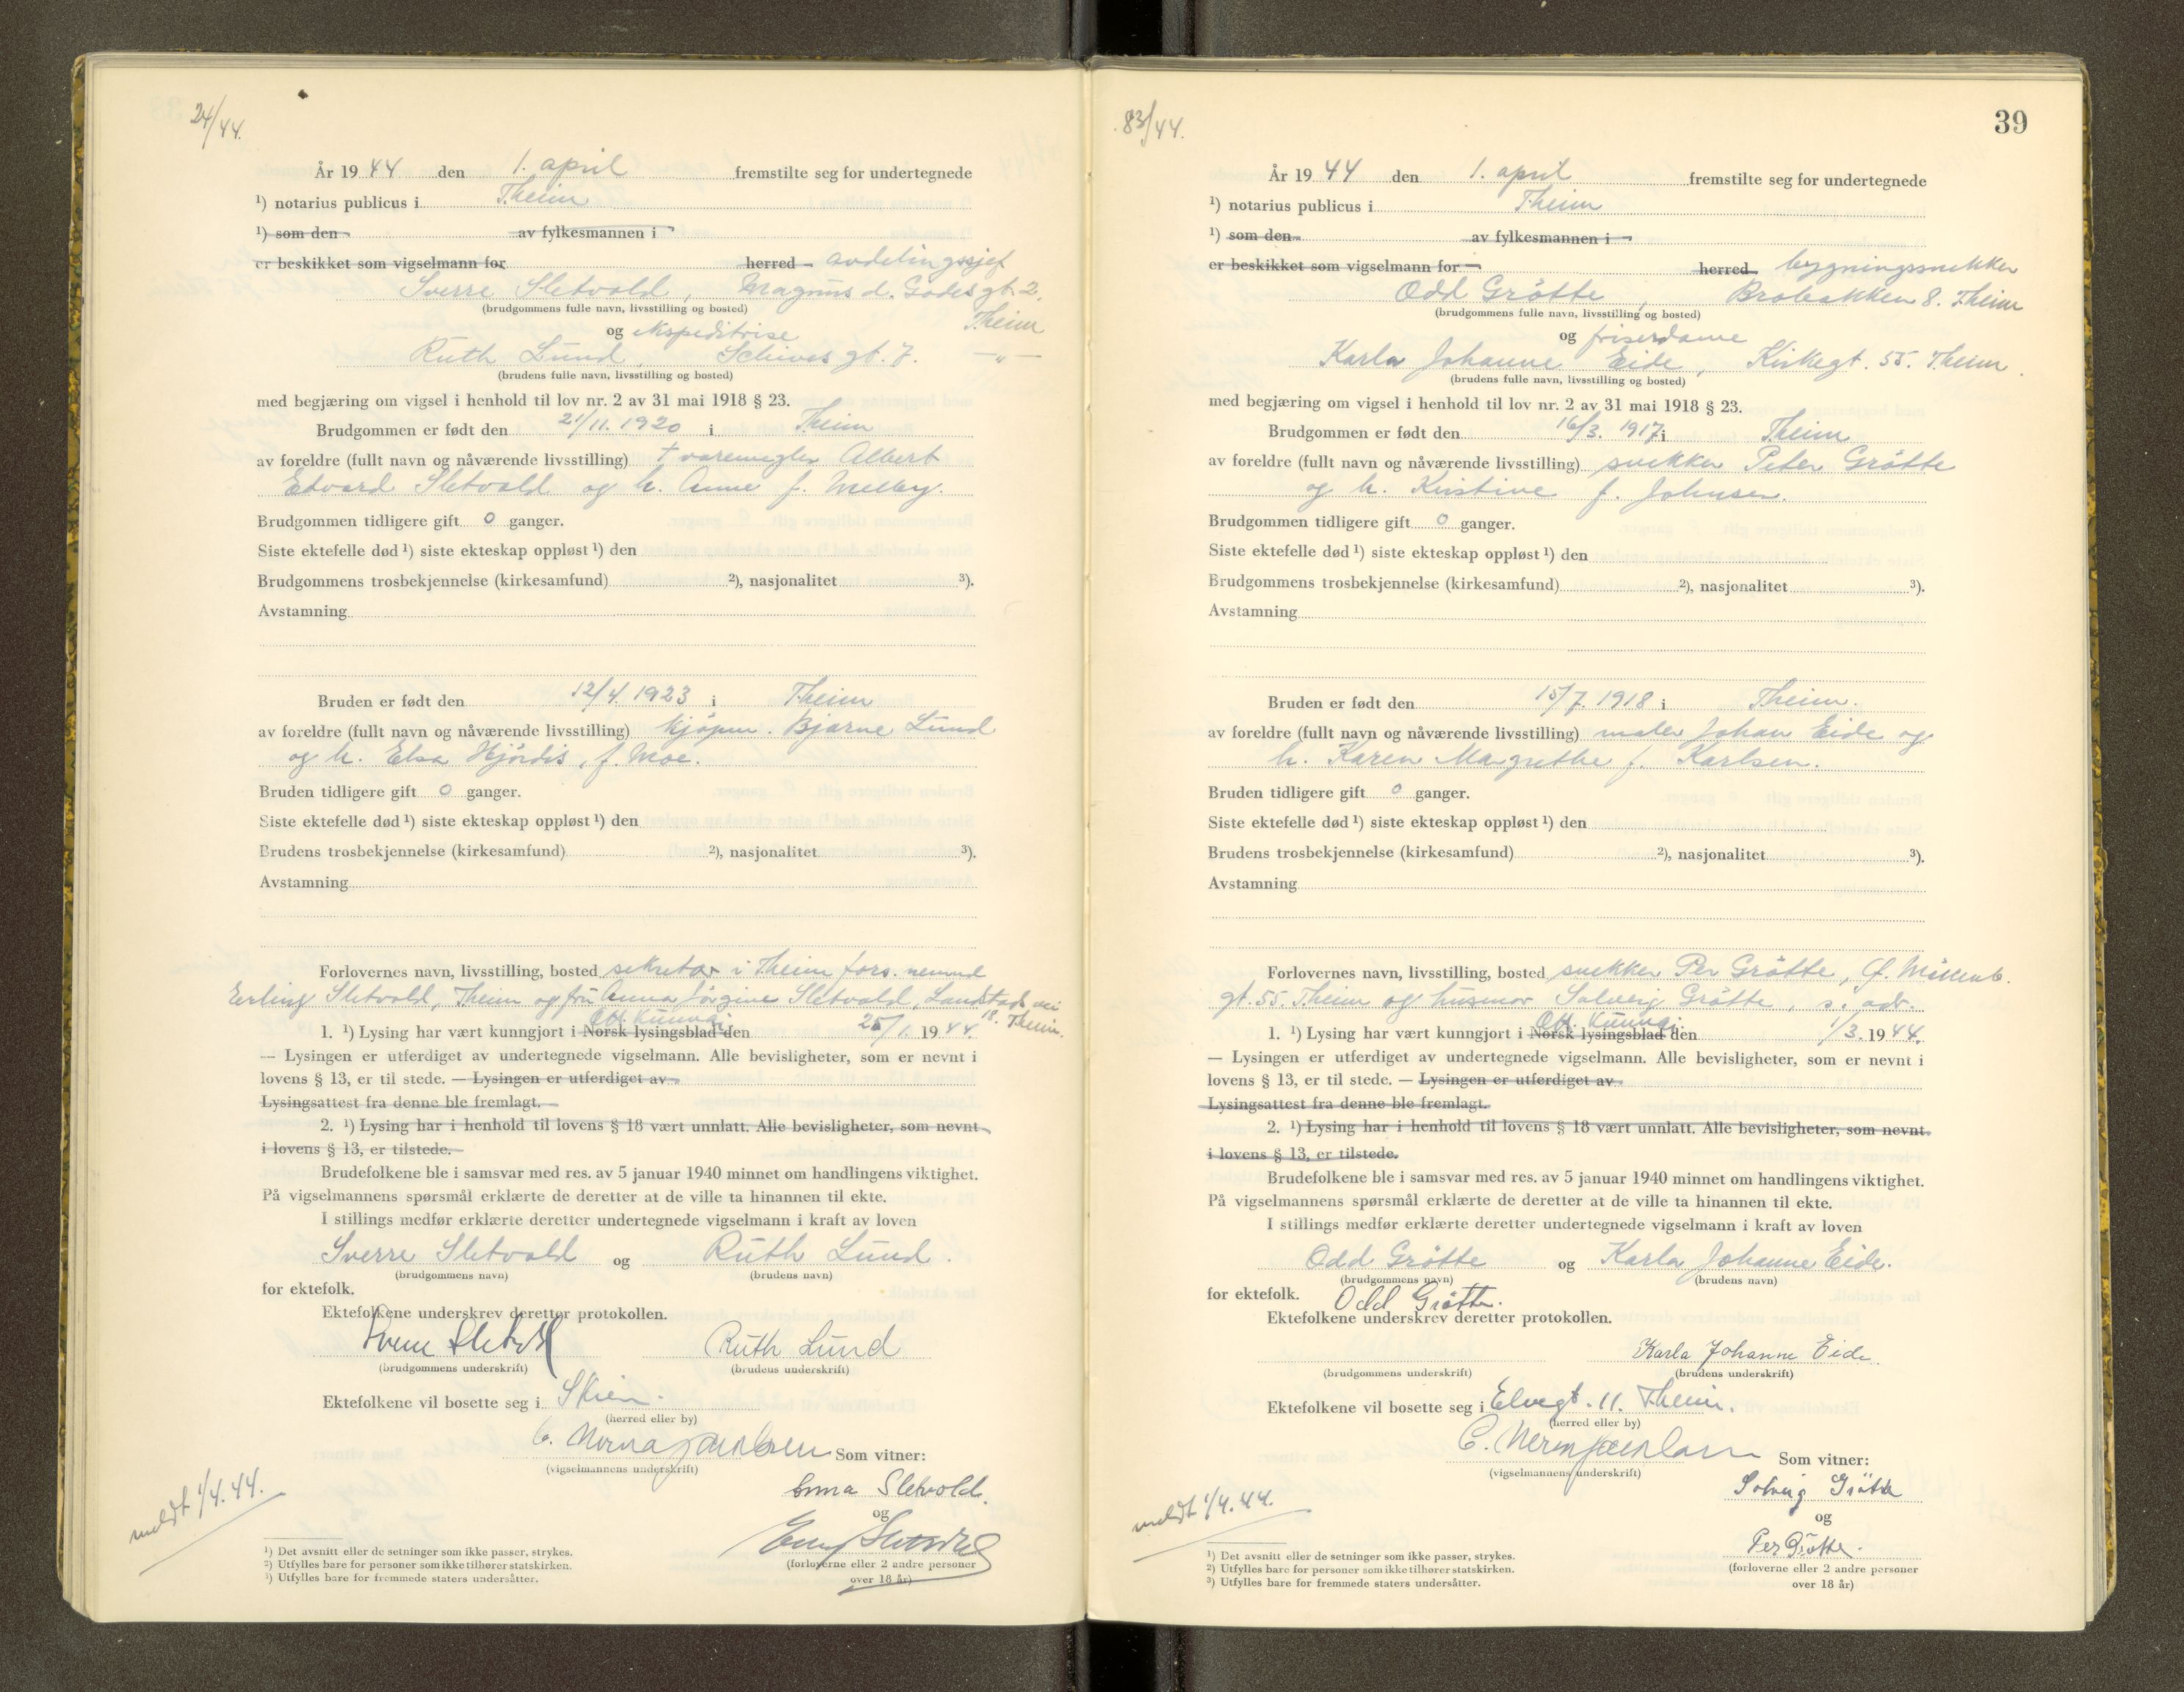 24/44.
År 1944 den 1. april fremstilte seg for undertegnede
¹) notarius publicus i Theim
¹) som den av fylkesmannen i
er beskikket som vigselmann for herred avdelingssjef
Sverre Sletvold, Magnus d. Godes gt. 2,
(brudgommens fulle navn, livsstilling og bosted)
Theim
og ekspeditrise
Ruth Lund, Schives gt. 7. —"—
(brudens fulle navn, livsstilling og bosted)
med begjæring om vigsel i henhold til lov nr. 2 av 31 mai 1918 § 23.
Brudgommen er født den 21/11. 1920 i Theim
av foreldre (fullt navn og nåværende livsstilling) † varemegler Albert
Edvard Sletvold og h. Anne f. Melby.
Brudgommen tidligere gift 0 ganger.
Siste ektefelle død ¹) siste ekteskap oppløst ¹) den
Brudgommens trosbekjennelse (kirkesamfund) ²), nasjonalitet ³).
Avstamning
Bruden er født den 12/4. 1923 i Theim
av foreldre (fullt navn og nåværende livsstilling) kjøpm. Bjarne Lund
og h. Elsa Hjördis, f. Moe.
Bruden tidligere gift 0 ganger.
Siste ektefelle død ¹) siste ekteskap oppløst ¹) den
Brudens trosbekjennelse (kirkesamfund) ²), nasjonalitet ³).
Avstamning
Forlovernes navn, livsstilling, bosted sekretær i Theim fors. nemnd
Erling Sletvold, Theim og fru Anna Jörgine Sletvold, Landstads vei
18. Theim.
Off. Kunngj.
1. ¹) Lysing har vært kunngjort i Norsk lysingsblad den 25/1. 1944.
— Lysingen er utferdiget av undertegnede vigselmann. Alle bevisligheter, som er nevnt i
lovens § 13, er til stede. — Lysingen er utferdiget av
Lysingsattest fra denne ble fremlagt.
2. ¹) Lysing har i henhold til lovens § 18 vært unnlatt. Alle bevisligheter, som nevnt
i lovens § 13, er tilstede.
Brudefolkene ble i samsvar med res. av 5 januar 1940 minnet om handlingens viktighet.
På vigselmannens spørsmål erklærte de deretter at de ville ta hinannen til ekte.
I stillings medfør erklærte deretter undertegnede vigselmann i kraft av loven
Sverre Sletvold og Ruth Lund.
(brudgommens navn) (brudens navn)
for ektefolk.
Ektefolkene underskrev deretter protokollen.
Sverre Sletvold Ruth Lund
(brudgommens underskrift) (brudens underskrift)
Ektefolkene vil bosette seg i Skien.
(herred eller by)
Som vitner:
(vigselmannens underskrift)
Anna Sletvold.
og
Erling Sletvold
(forloverne eller 2 andre personer
over 18 år)
meldt 1/4. 44.
¹) Det avsnitt eller de setninger som ikke passer, strykes.
²) Utfylles bare for personer som ikke tilhører statskirken.
³) Utfylles bare for fremmede staters undersåtter.
83/44.
39
År 1944 den 1. april fremstilte seg for undertegnede
¹) notarius publicus i Theim
¹) som den av fylkesmannen i
er beskikket som vigselmann for herred bygningssnekker
Odd Grötte, Brobakken 8. Theim
(brudgommens fulle navn, livsstilling og bosted)
og friserdame
Karla Johanne Eide, Kirkegt. 55. Theim.
(brudens fulle navn, livsstilling og bosted)
med begjæring om vigsel i henhold til lov nr. 2 av 31 mai 1918 § 23.
Brudgommen er født den 16/3. 1917 i Theim
av foreldre (fullt navn og nåværende livsstilling) snekker Peter Grötte
og h. Kristine f. Johnsen.
Brudgommen tidligere gift 0 ganger.
Siste ektefelle død ¹) siste ekteskap oppløst ¹) den
Brudgommens trosbekjennelse (kirkesamfund) ²), nasjonalitet ³).
Avstamning
Bruden er født den 15/7. 1918 i Theim.
av foreldre (fullt navn og nåværende livsstilling) maler Johan Eide og
h. Karen Margrethe f. Karlsen.
Bruden tidligere gift 0 ganger.
Siste ektefelle død ¹) siste ekteskap oppløst ¹) den
Brudens trosbekjennelse (kirkesamfund) ²), nasjonalitet ³).
Avstamning
Forlovernes navn, livsstilling, bosted snekker Per Grötte, Ö. Möllenb.
gt. 55. Theim og husmor Solveig Grötte, s. adr.
Off. Kunngj.
1. ¹) Lysing har vært kunngjort i Norsk lysingsblad den 1/3. 1944.
— Lysingen er utferdiget av undertegnede vigselmann. Alle bevisligheter, som er nevnt i
lovens § 13, er til stede. — Lysingen er utferdiget av
Lysingsattest fra denne ble fremlagt.
2. ¹) Lysing har i henhold til lovens § 18 vært unnlatt. Alle bevisligheter, som nevnt
i lovens § 13, er tilstede.
Brudefolkene ble i samsvar med res. av 5 januar 1940 minnet om handlingens viktighet.
På vigselmannens spørsmål erklærte de deretter at de ville ta hinannen til ekte.
I stillings medfør erklærte deretter undertegnede vigselmann i kraft av loven
Odd Grötte og Karla Johanne Eide.
(brudgommens navn) (brudens navn)
for ektefolk. Odd Grötte.
Ektefolkene underskrev deretter protokollen.
Karla Johanne Eide
(brudgommens underskrift) (brudens underskrift)
Ektefolkene vil bosette seg i Elvegt. 11. Theim.
(herred eller by)
Som vitner:
(vigselmannens underskrift)
Solveig Grötte
og
Per Grötte.
(forloverne eller 2 andre personer
over 18 år)
meldt 1/4. 44.
¹) Det avsnitt eller de setninger som ikke passer, strykes.
²) Utfylles bare for personer som ikke tilhører statskirken.
³) Utfylles bare for fremmede staters undersåtter.